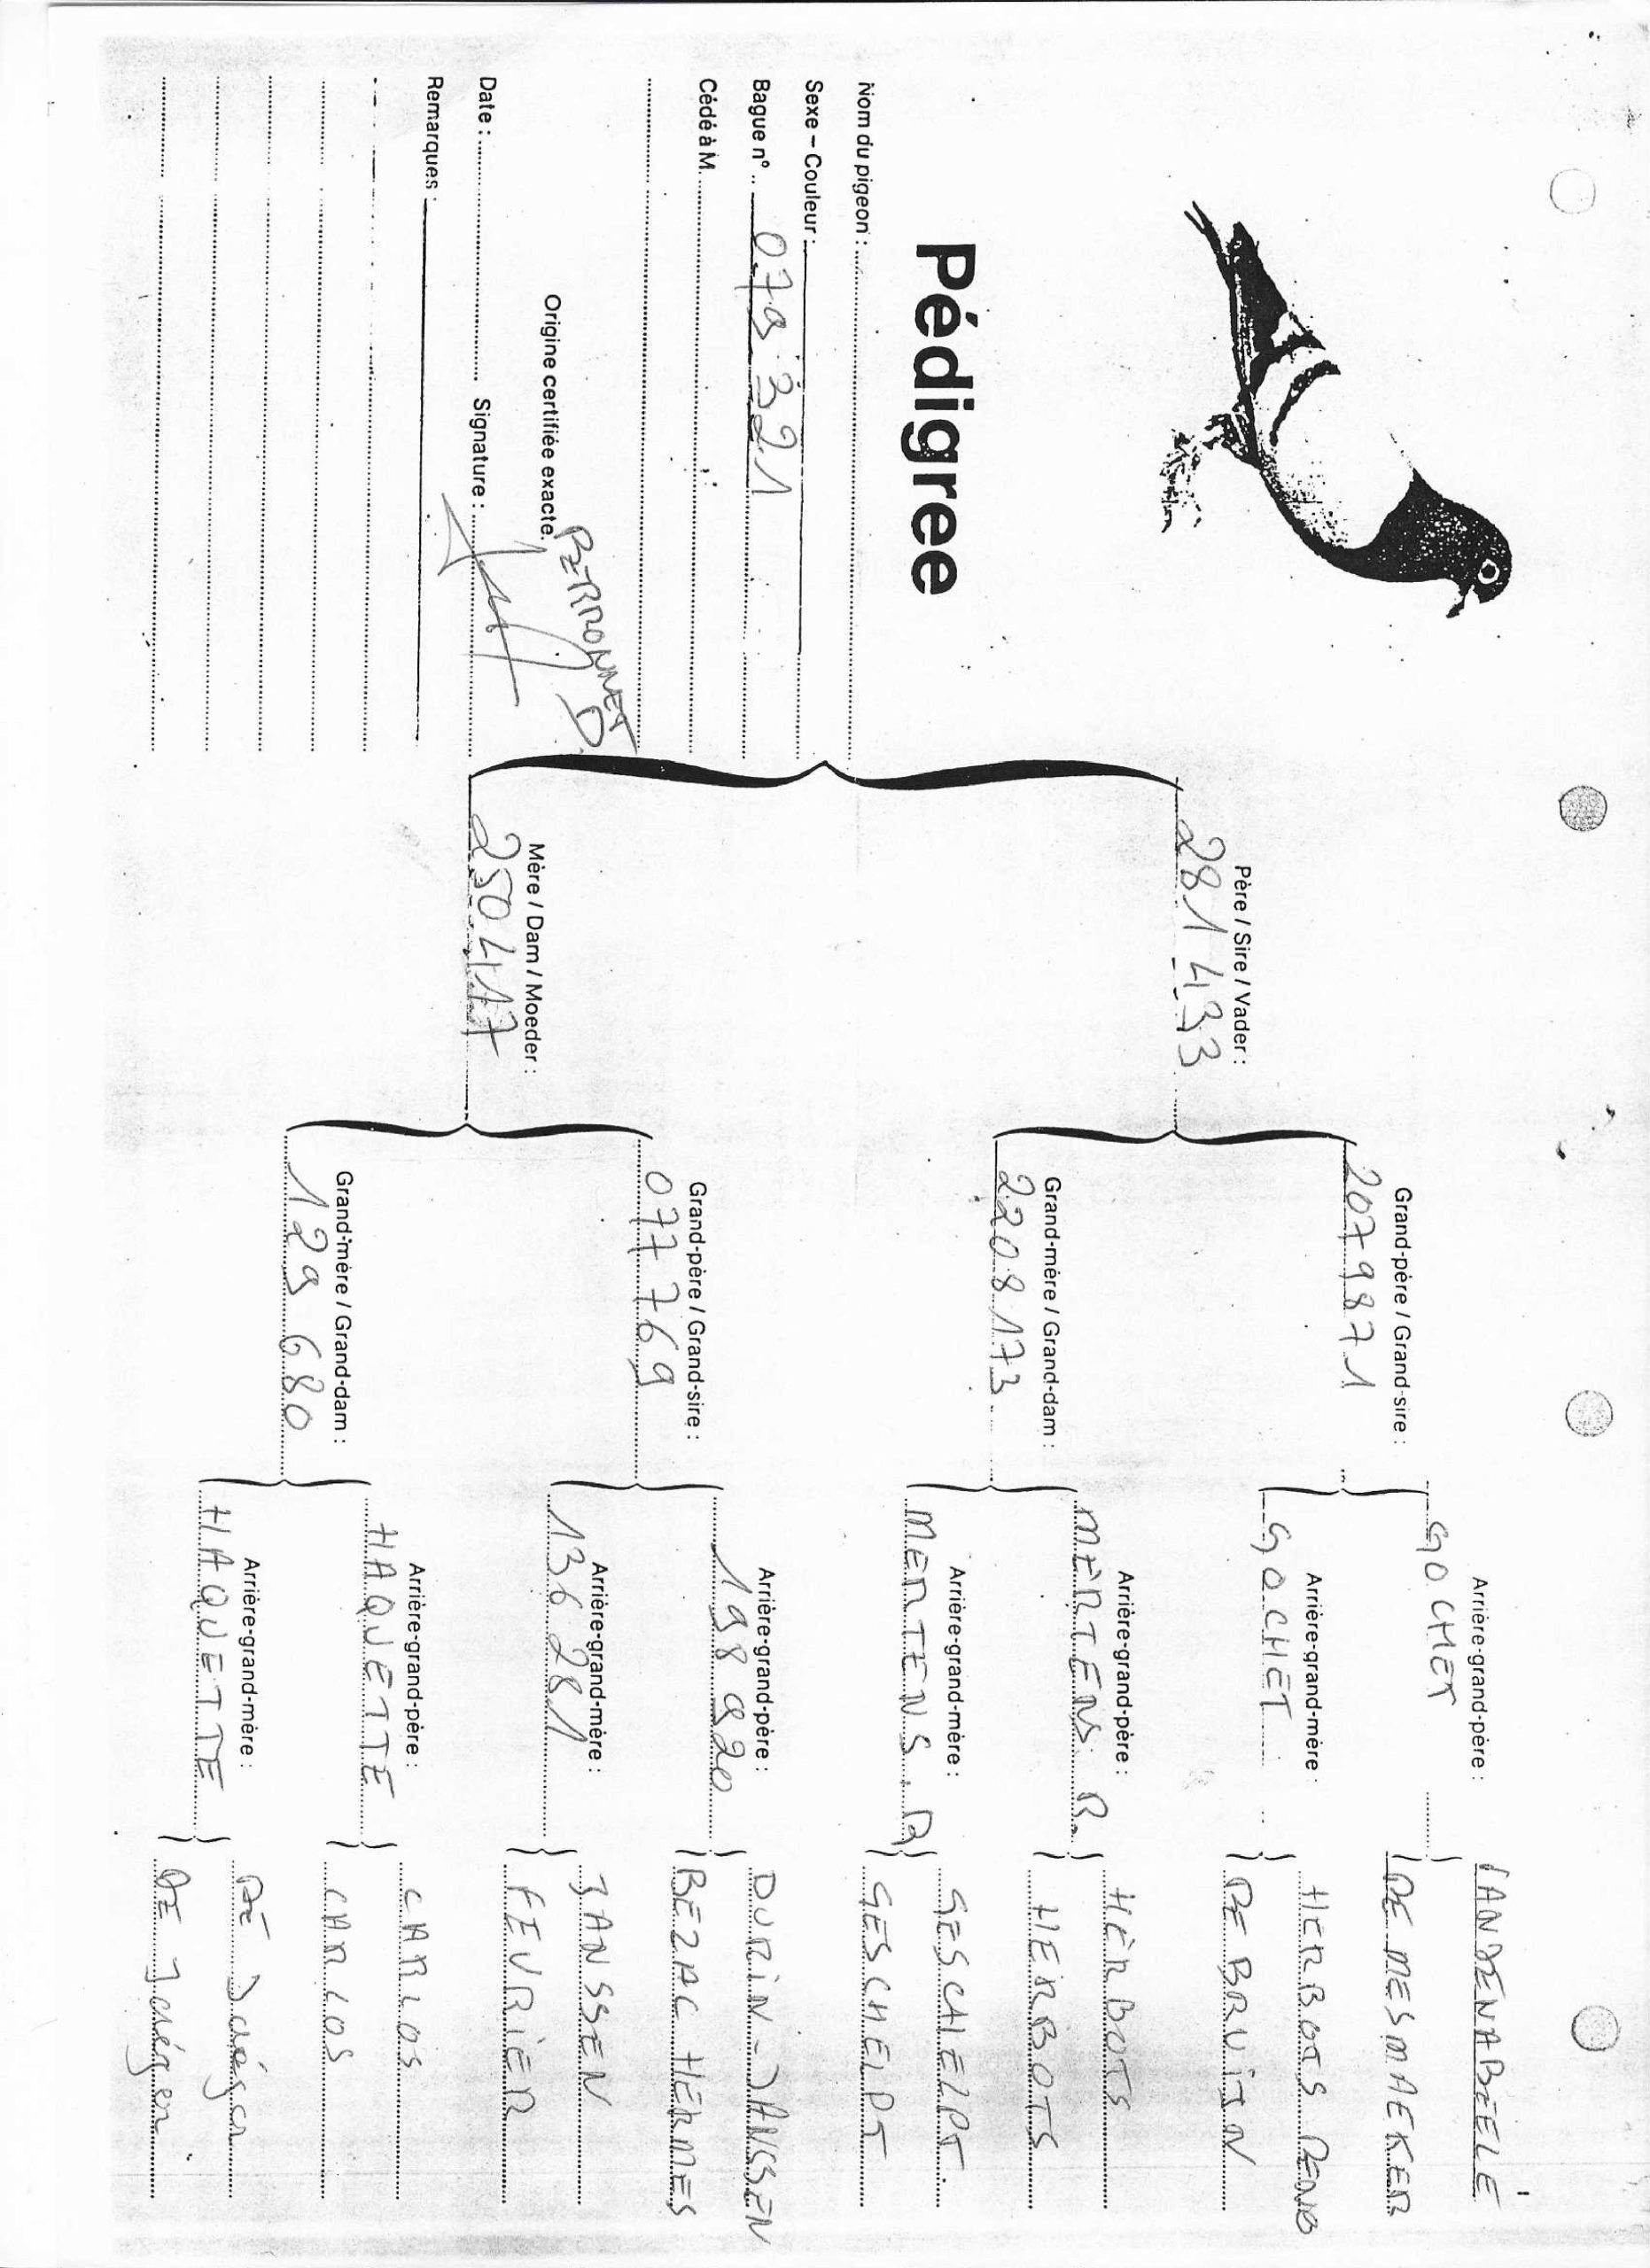 Pédigree
Nom du pigeon :
Sexe – Couleur :
Bague n° 079 321
Cédé à M.
PERRONNET D.
Origine certifiée exacte,
Date : Signature :
Remarques :
Père / Sire / Vader :
281 433
Mère / Dam / Moeder :
250 417
Grand-père / Grand-sire :
2079871
Grand-mère / Grand-dam :
2208173
Grand-père / Grand-sire :
077769
Grand-mère / Grand-dam :
129 680
Arrière-grand-père :
GOCHET
Arrière-grand-mère :
GOCHET
Arrière-grand-père :
MERTENS R.
Arrière-grand-mère :
MERTENS. R
Arrière-grand-père :
198 920
Arrière-grand-mère :
136 281
Arrière-grand-père :
HAQUETTE
Arrière-grand-mère :
HAQUETTE
VANDENABEELE
DE MESMAEKER
HERBOTS
DE BRUIJN
HERBOTS
HERBOTS
GESCHELPT.
GESCHELPT
DURIN-JANSSEN
BEZAC HERMES
JANSSEN
FEVRIER
CARLOS
CARLOS
DE
DE